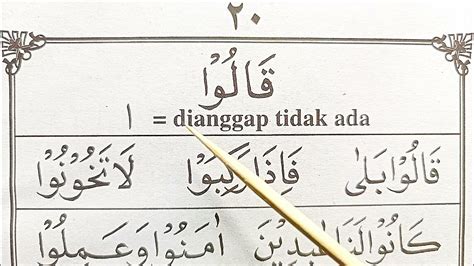 ٢٠
قَالُوْا
ا = dianggap tidak ada
قَالُوْابَلٰى فَاِذَارَكِبُوْا لَاتَخُوْنُوْا
كَانُوْالَنَاعٰبِدِيْنَ اٰمَنُوْاوَعَمِلُوا